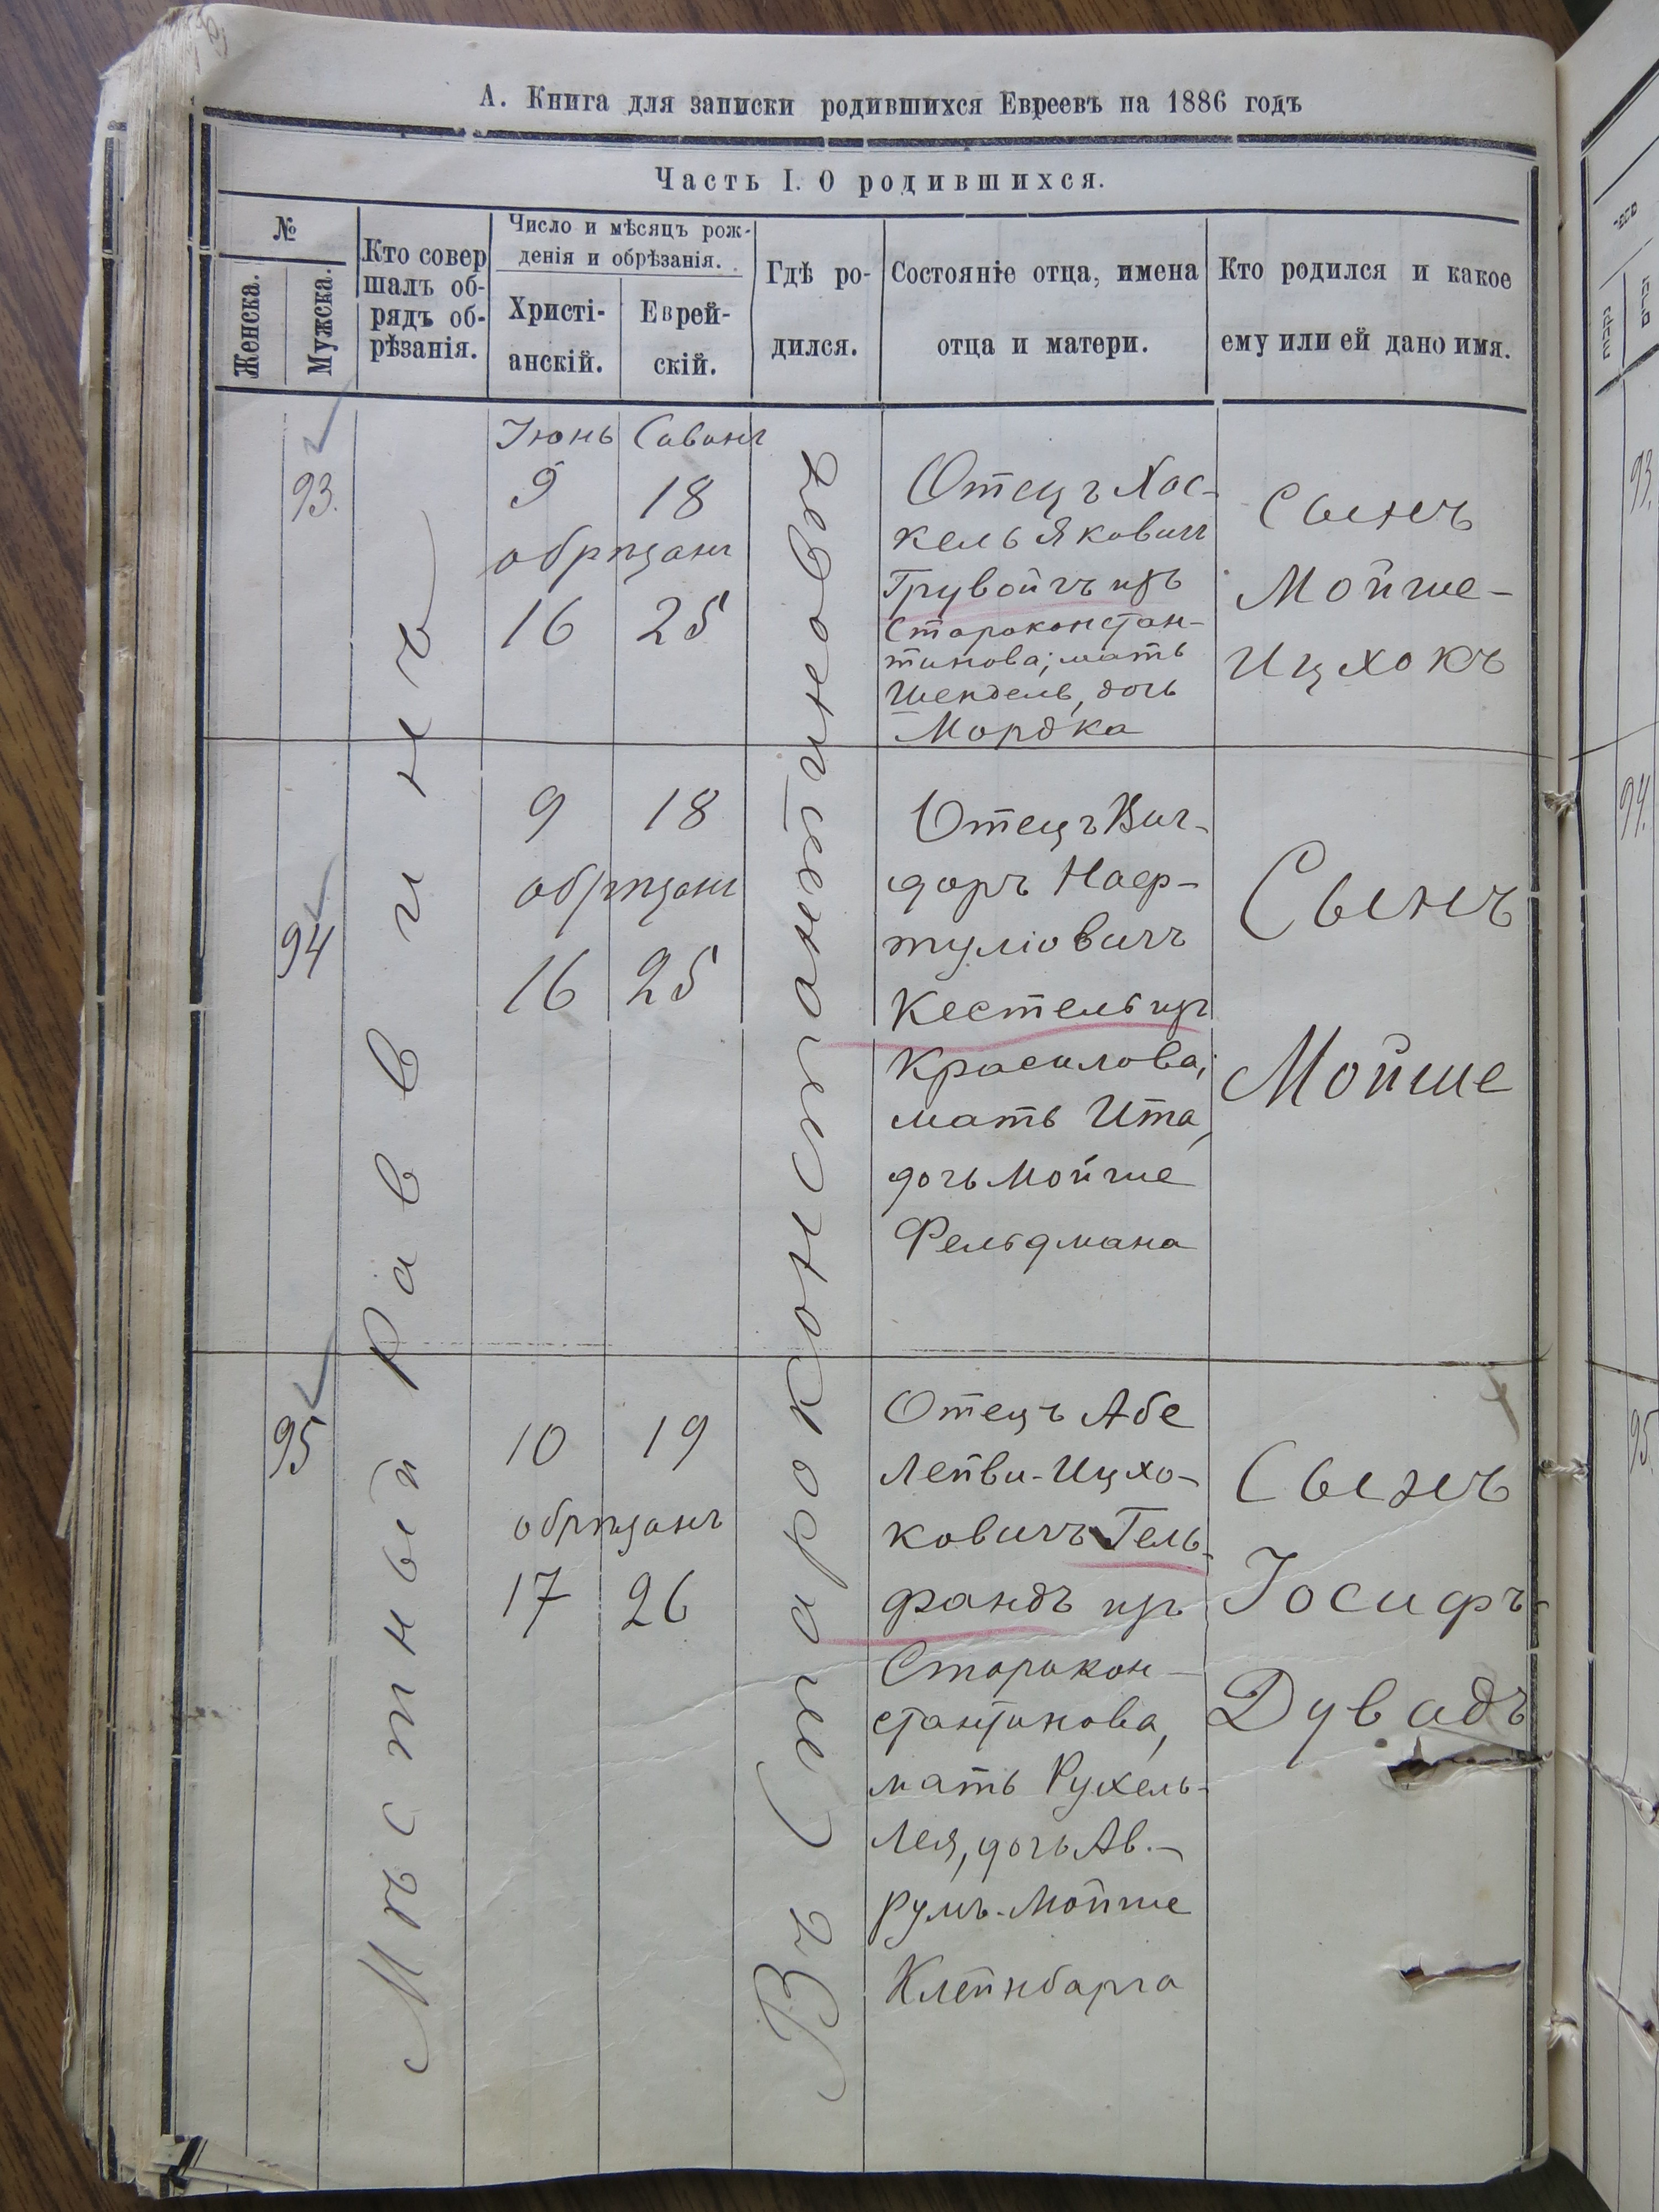 А. Книга для записки родившихся Евреевъ на 1886 годъ
Часть I. О родившихся.
№
Женска.
Мужска.
Кто совер
шалъ об-
рядъ об-
рѣзанія.
Число и мѣсяцъ рож-
денія и обрѣзанія.
Христі-
анскій.
Еврей-
скій.
Гдѣ ро-
дился.
Состояніе отца, имена
отца и матери.
Кто родился и какое
ему или ей дано имя.
Мѣстный Раввинъ
Въ Староконстантиновѣ
93.
Іюнь Сиванъ
9 18
обрѣзанъ
16 25
Отецъ Хас-
кель Яковичъ
Грувойгъ изъ
Староконстан-
тинова; мать
Шендель, дочь
Мордка
Сынъ
Мойше-
Ицхокъ
94
9 18
обрѣзанъ
16 25
Отецъ Виг-
доръ Наф-
туліовичъ
Кестель изъ
Красилова;
мать Ита,
дочь Мойше
Фельдмана
Сынъ
Мойше
95
10 19
обрѣзанъ
17 26
Отецъ Абе
Лейви-Ицхо-
ковичъ Гель-
фандъ изъ
Старокон-
стантинова,
мать Рухель-
Лея, дочь Ав.-
румъ-Мойше
Клейнбарга
Сынъ
Іосифъ-
Дувидъ
93.
94.
95.